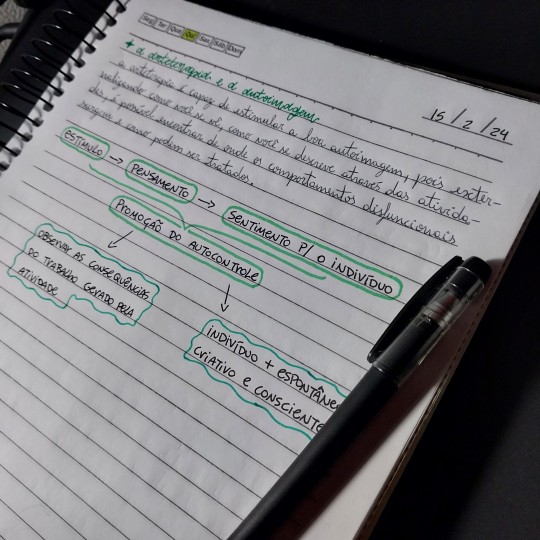 Seg Ter Qua Qui Sex Sáb Dom
+ A arteterapia e a autoimagem
15/2/24
a arteterapia é capaz de estimular a boa autoimagem, pois exter-
nalizando como você se vê, como você se descreve através das ativida-
des, é possível encontrar de onde os comportamentos disfuncionais
surgem e como podem ser tratados.
ESTÍMULO → PENSAMENTO → SENTIMENTO P/ O INDIVÍDUO
PROMOÇÃO DO AUTOCONTROLE
OBSERVAR AS CONSEQUÊNCIAS
DO TRABALHO GERADO PELA
ATIVIDADE
INDIVÍDUO + ESPONTÂNE
CRIATIVO E CONSCIENTE